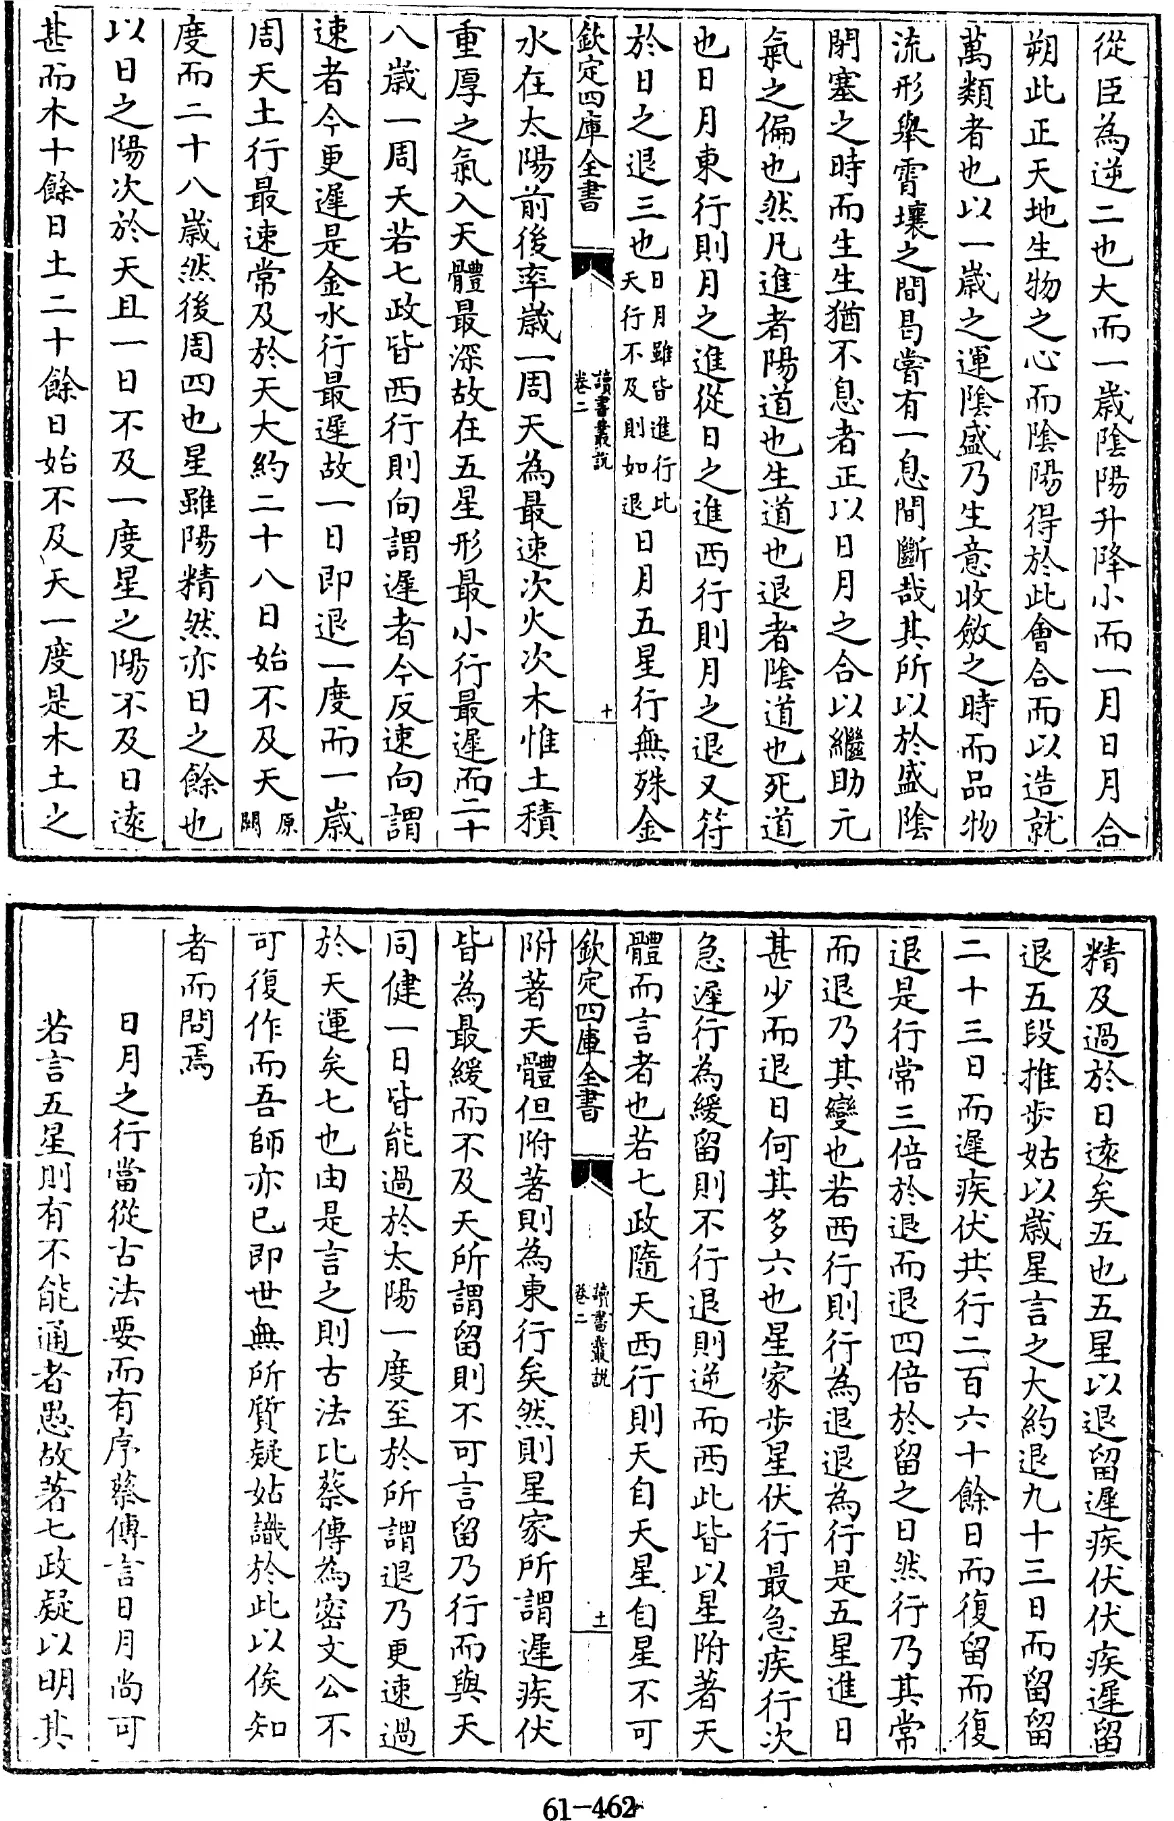 從臣為逆二也大而一歲陰陽升降小而一月日月合
朔此正天地生物之心而陰陽得於此會合而以造就
萬類者也以一歲之運陰盛乃生意收斂之時而品物
流形舉霄壤之間曷嘗有一息間斷哉其所以於盛陰
閉塞之時而生生猶不息者正以日月之合以繼助元
氣之偏也然凡進者陽道也生道也退者陰道也死道
也日月東行則月之進從日之進西行則月之退又符
於日之退三也日月雖皆進行比天行不及則如退日月五星行無殊金
欽定四庫全書
讀書叢說
卷二
十
水在太陽前後率歲一周天為最速次火次木惟土積
重厚之氣入天體最深故在五星形最小行最遲而二十
八歲一周天若七政皆西行則向謂遲者今反速向謂
速者今更遲是金水行最遲故一日即退一度而一歲
周天土行最速常及於天大約二十八日始不及天原闕
度而二十八歲然後周四也星雖陽精然亦日之餘也
以日之陽次於天且一日不及一度星之陽不及日遠
甚而木十餘日土二十餘日始不及天一度是木土之
精及過於日遠矣五也五星以退留遲疾伏伏疾遲留
退五段推步姑以歲星言之大約退九十三日而留留
二十三日而遲疾伏共行二百六十餘日而復留而復
退是行常三倍於退而退四倍於留之日然行乃其常
而退乃其變也若西行則行為退退為行是五星進日
甚少而退日何其多六也星家步星伏行最急疾行次
急遲行為緩留則不行退則逆而西此皆以星附著天
體而言者也若七政隨天西行則天自天星自星不可
欽定四庫全書
讀書叢說
卷二
十一
附著天體但附著則為東行矣然則星家所謂遲疾伏
皆為最緩而不及天所謂留則不可言留乃行而與天
同健一日皆能過於太陽一度至於所謂退乃更速過
於天運矣七也由是言之則古法比蔡傳為密文公不
可復作而吾師亦已即世無所質疑姑識於此以俟知
者而問焉
日月之行當從古法要而有序蔡傳言日月尚可
若言五星則有不能通者愚故著七政疑以明其
61-462